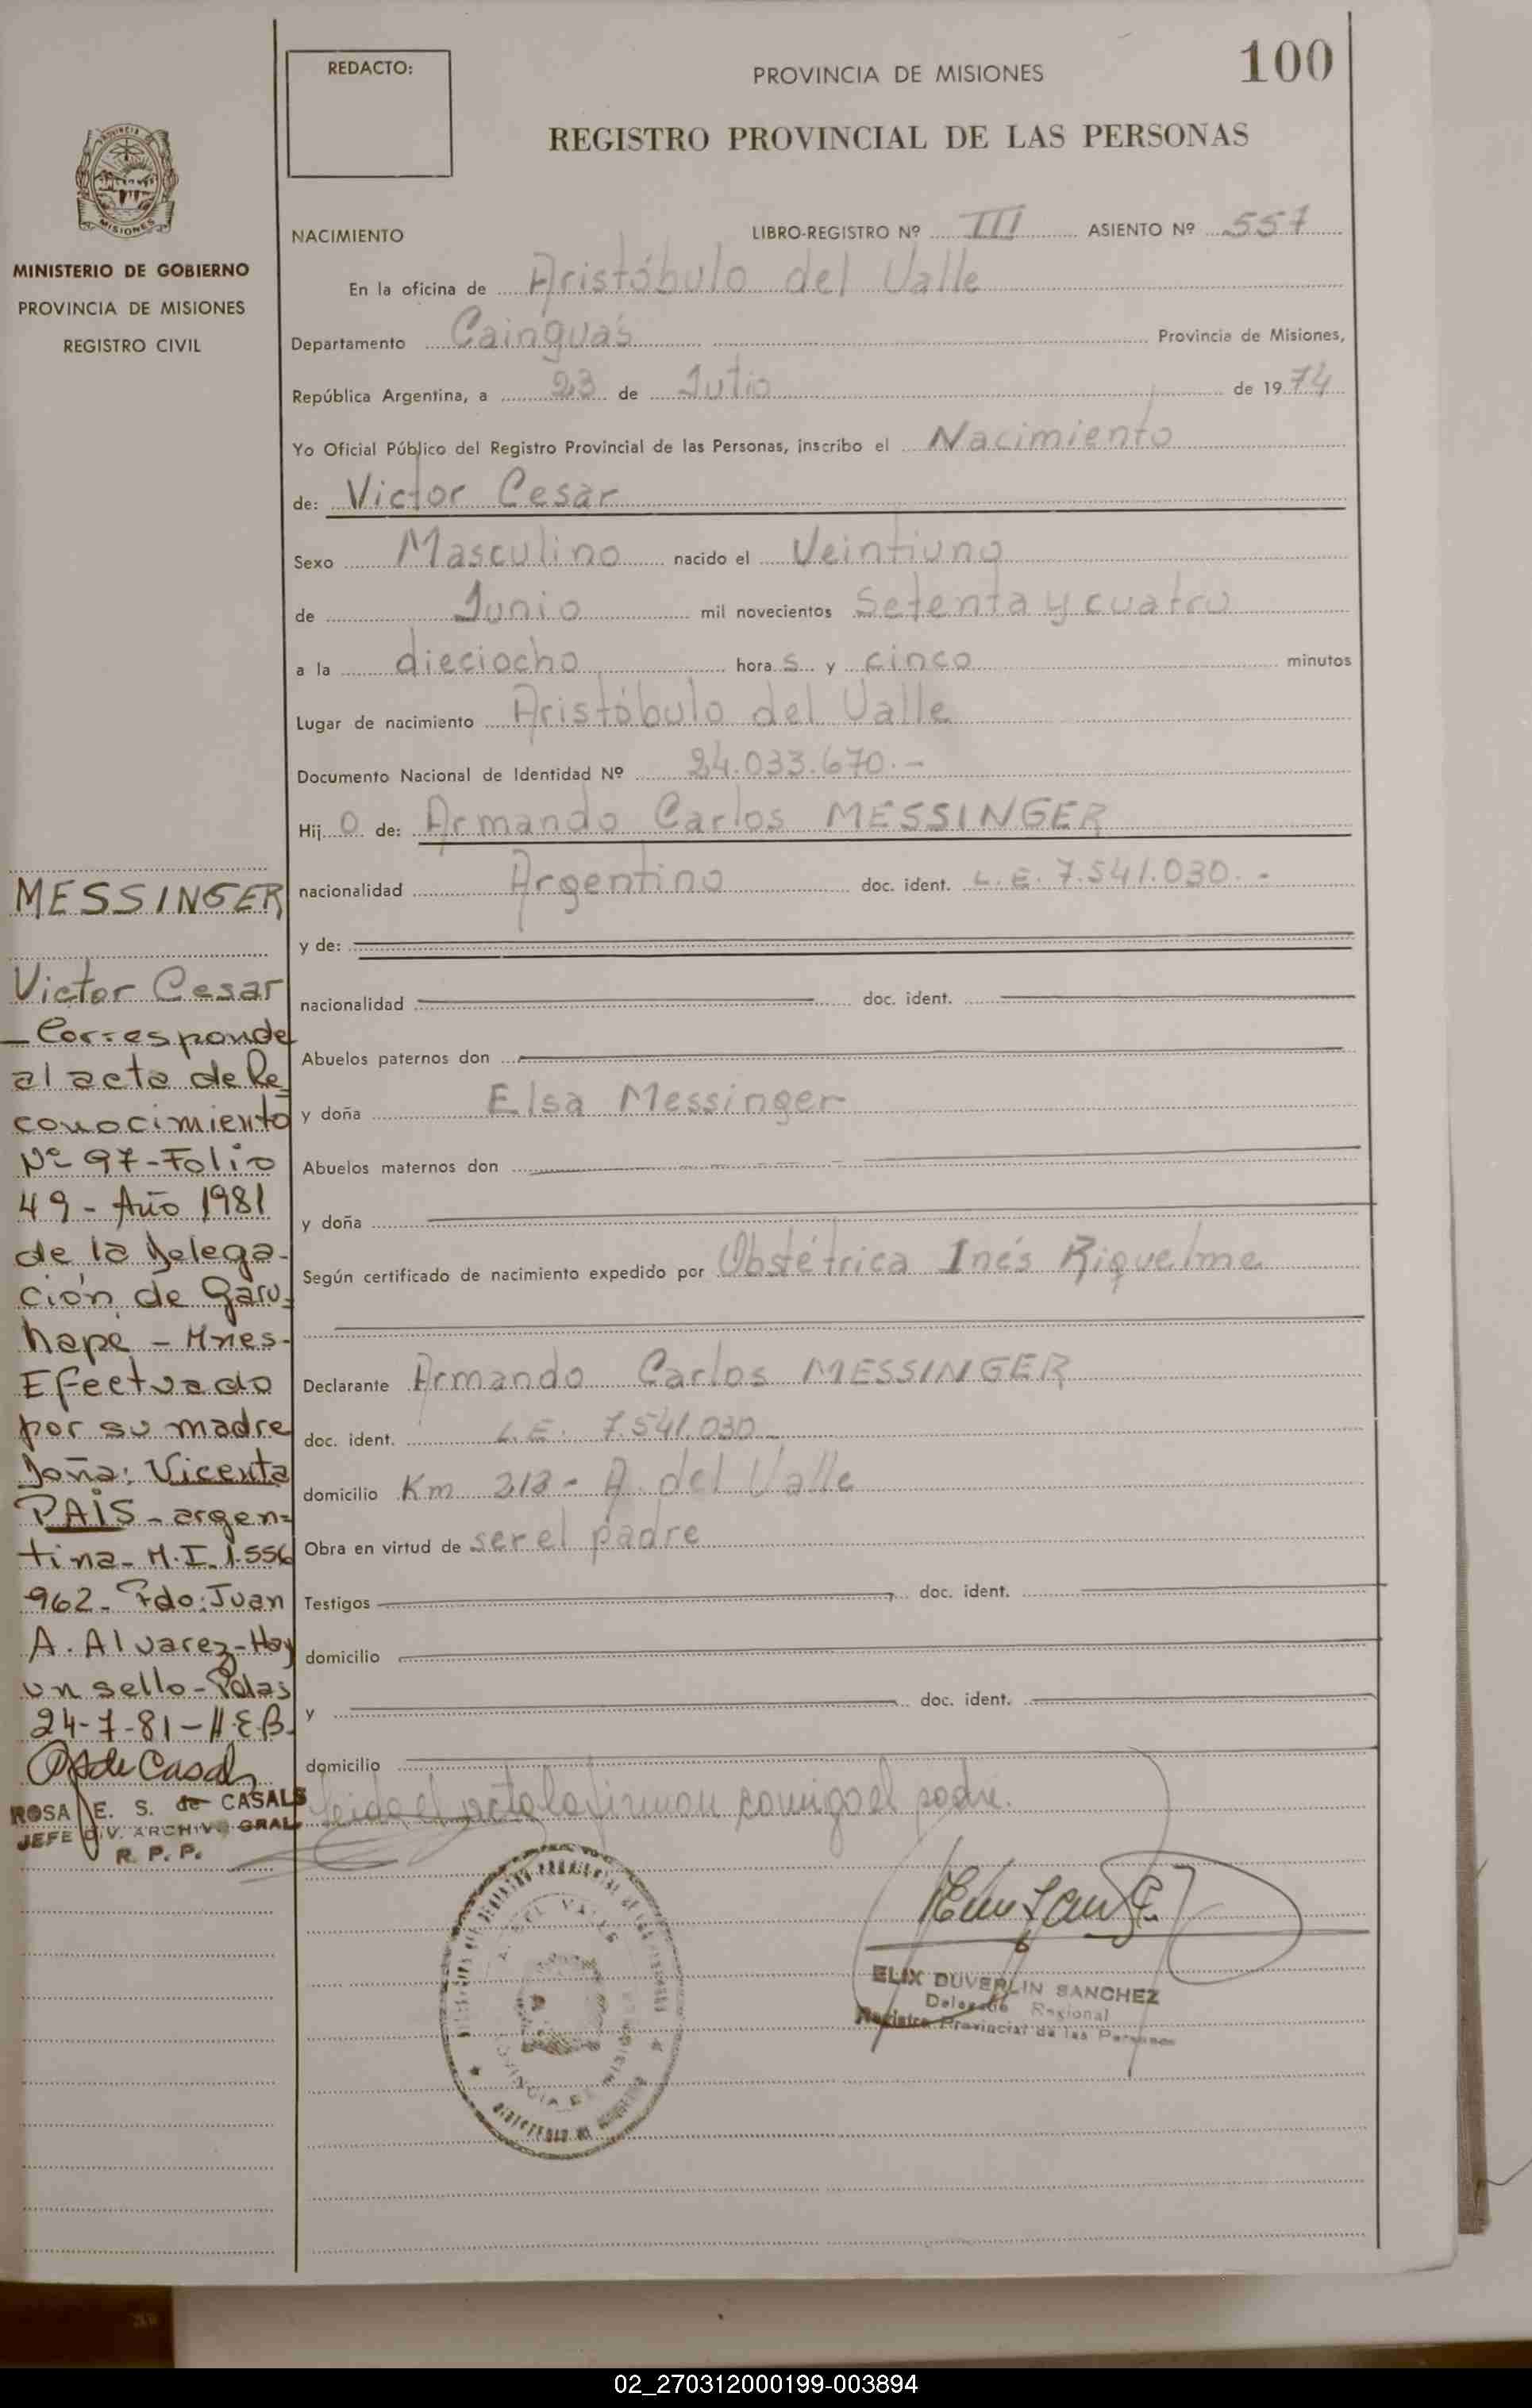 REDACTO:
PROVINCIA DE MISIONES
100
REGISTRO PROVINCIAL DE LAS PERSONAS
MISIONES
MINISTERIO DE GOBIERNO
PROVINCIA DE MISIONES
REGISTRO CIVIL
NACIMIENTO LIBRO-REGISTRO Nº III ASIENTO Nº 557
En la oficina de Aristóbulo del Valle
Departamento Cainguás Provincia de Misiones,
República Argentina, a 23 de Julio de 1974
Yo Oficial Público del Registro Provincial de las Personas, inscribo el Nacimiento
de: Victor Cesar
Sexo Masculino nacido el Veintiuno
de Junio mil novecientos Setenta y cuatro
a la dieciocho hora s y cinco minutos
Lugar de nacimiento Aristóbulo del Valle
Documento Nacional de Identidad Nº 24.033.670.-
Hij o de: Armando Carlos MESSINGER
nacionalidad Argentino doc. ident. L.E. 7.541.030.-
y de:
nacionalidad doc. ident.
Abuelos paternos don
y doña Elsa Messinger
Abuelos maternos don
y doña
Según certificado de nacimiento expedido por Obstétrica Inés Riquelme
Declarante Armando Carlos MESSINGER
doc. ident. L.E. 7.541.030
domicilio Km 213 - A. del Valle
Obra en virtud de ser el padre
Testigos doc. ident.
domicilio
y doc. ident.
domicilio
leida el acta la firman conmigo el padre.
ELIX DUVERLIN SANCHEZ
Delegado Regional
Registro Provincial de las Personas
MESSINGER
Victor Cesar
- Corresponde
al acta de Re
conocimiento
Nº 97 - Folio
49 - Año 1981
de la Delega-
ción de Garu-
hapé - Mnes-
Efectuado
por su madre
Doña: Vicenta
PAIS - argen-
tina - M.I. 1.556
962 - Fdo: Juan
A. Alvarez - Hay
un sello - Pdas
24-7-81 - H.E.B.
ROSA E. S. de CASALS
JEFE DIV. ARCHIVO GRAL
R. P. P.
02_270312000199-003894